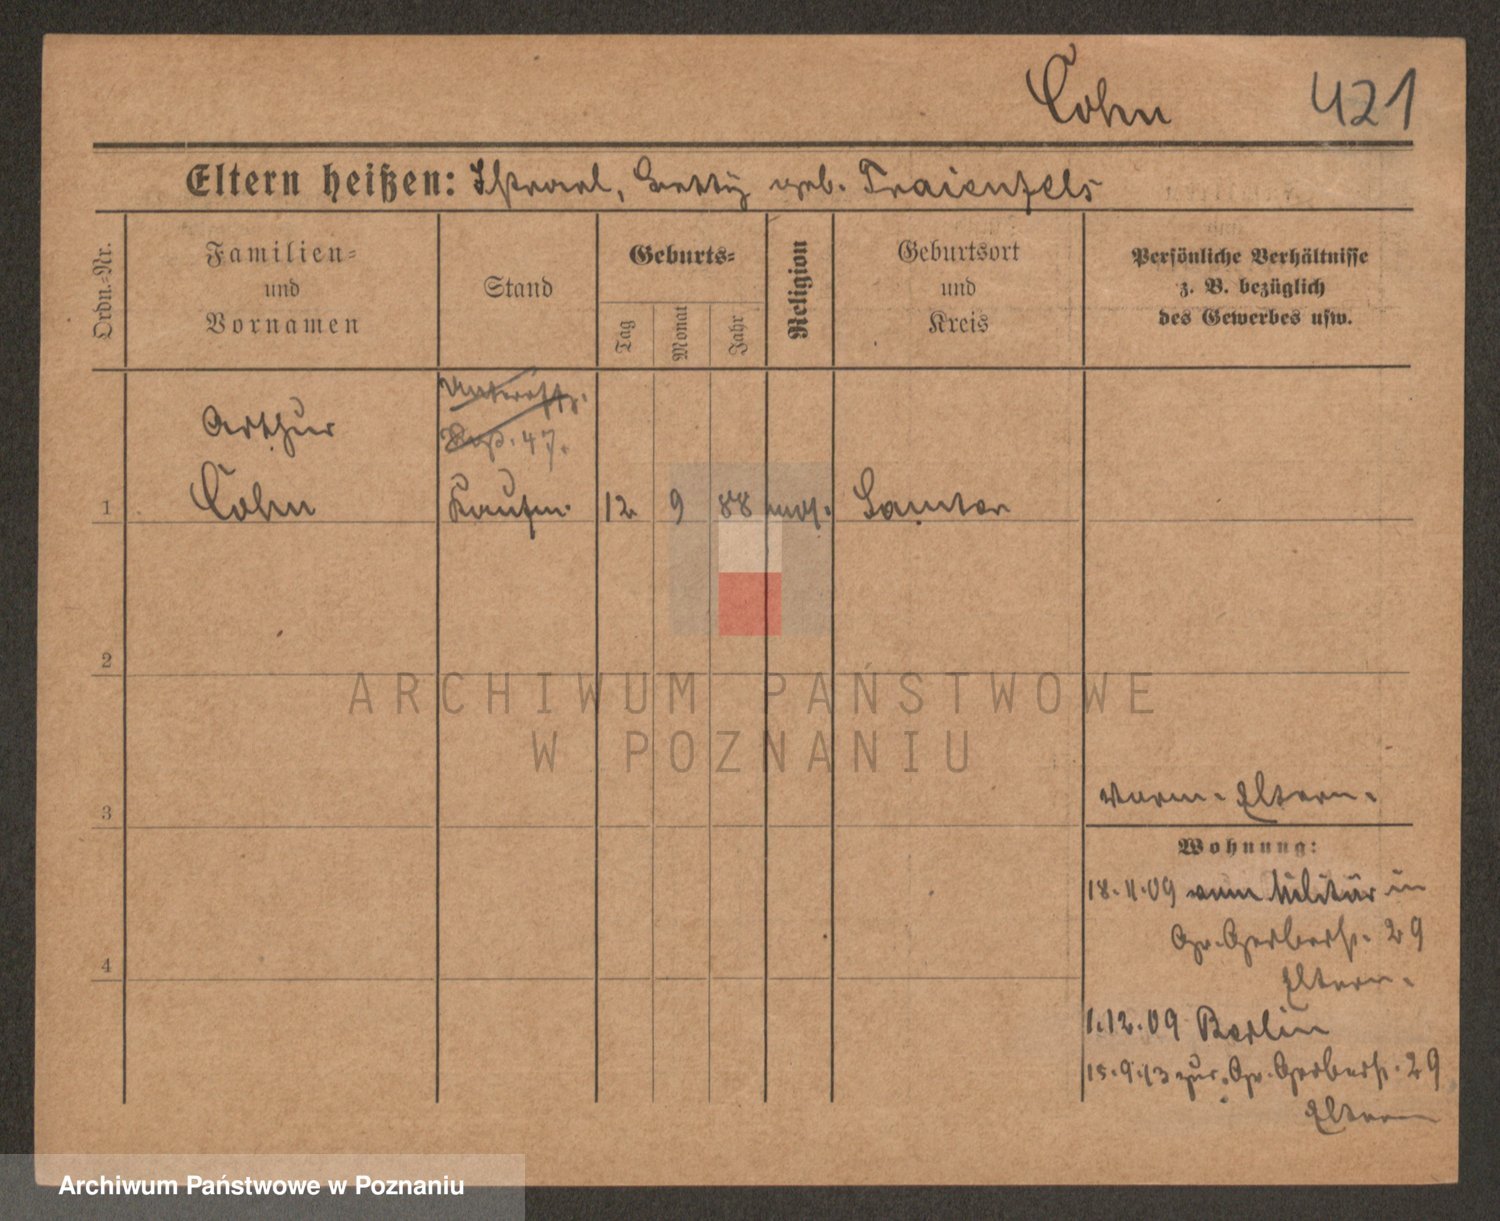 Cohn 421
Eltern heißen: Isrrael, Betty geb. Fraienfels
Ordn.=Nr.
Familien=
und
Vornamen
Stand
Geburts=
Tag
Monat
Jahr
Religion
Geburtsort
und
Kreis
Persönliche Verhältnisse
z. B. bezüglich
des Gewerbes usw.
Arthur
47.
1 Cohn Kaufm. 12 9 88 mos. Samter
2
ARCHIWUM PAŃSTWOWE
W POZNANIU
3
Eltern.
Wohnung:
18.11.09 vom Militär in
Gr. Gerberst. 29
4
Eltern.
1.12.09 Berlin
15.9.13 zur. Gr. Gerberst. 29
Eltern
Archiwum Państwowe w Poznaniu